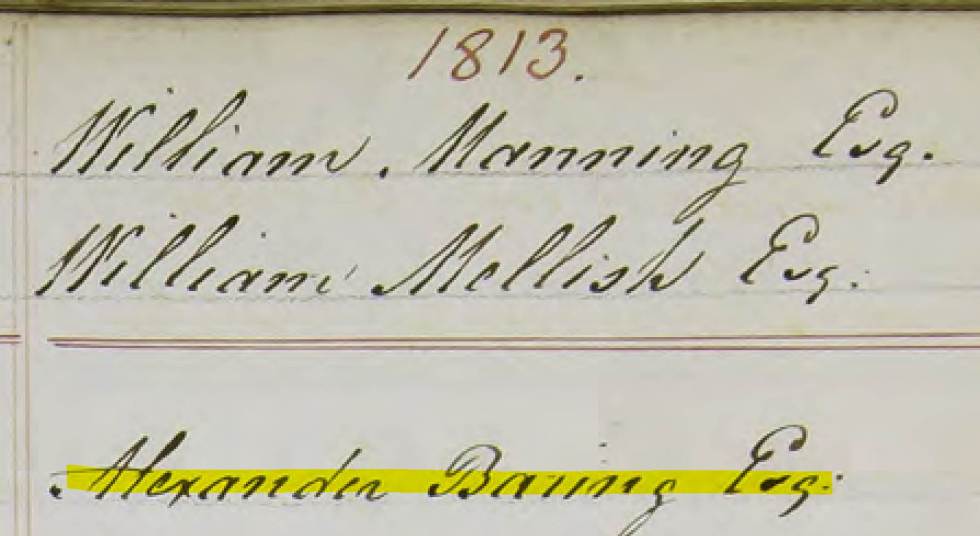 1813.
William Manning Esq.
William Mellish Esq.
Alexander Baring Esq.